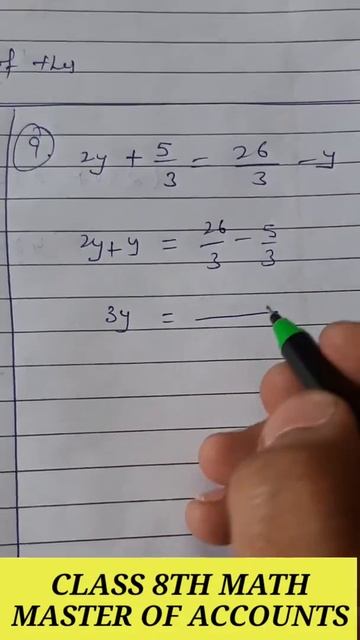 of the
9. 2y + 5/3 = 26/3 - y
2y + y = 26/3 - 5/3
3y =
CLASS 8TH MATH
MASTER OF ACCOUNTS